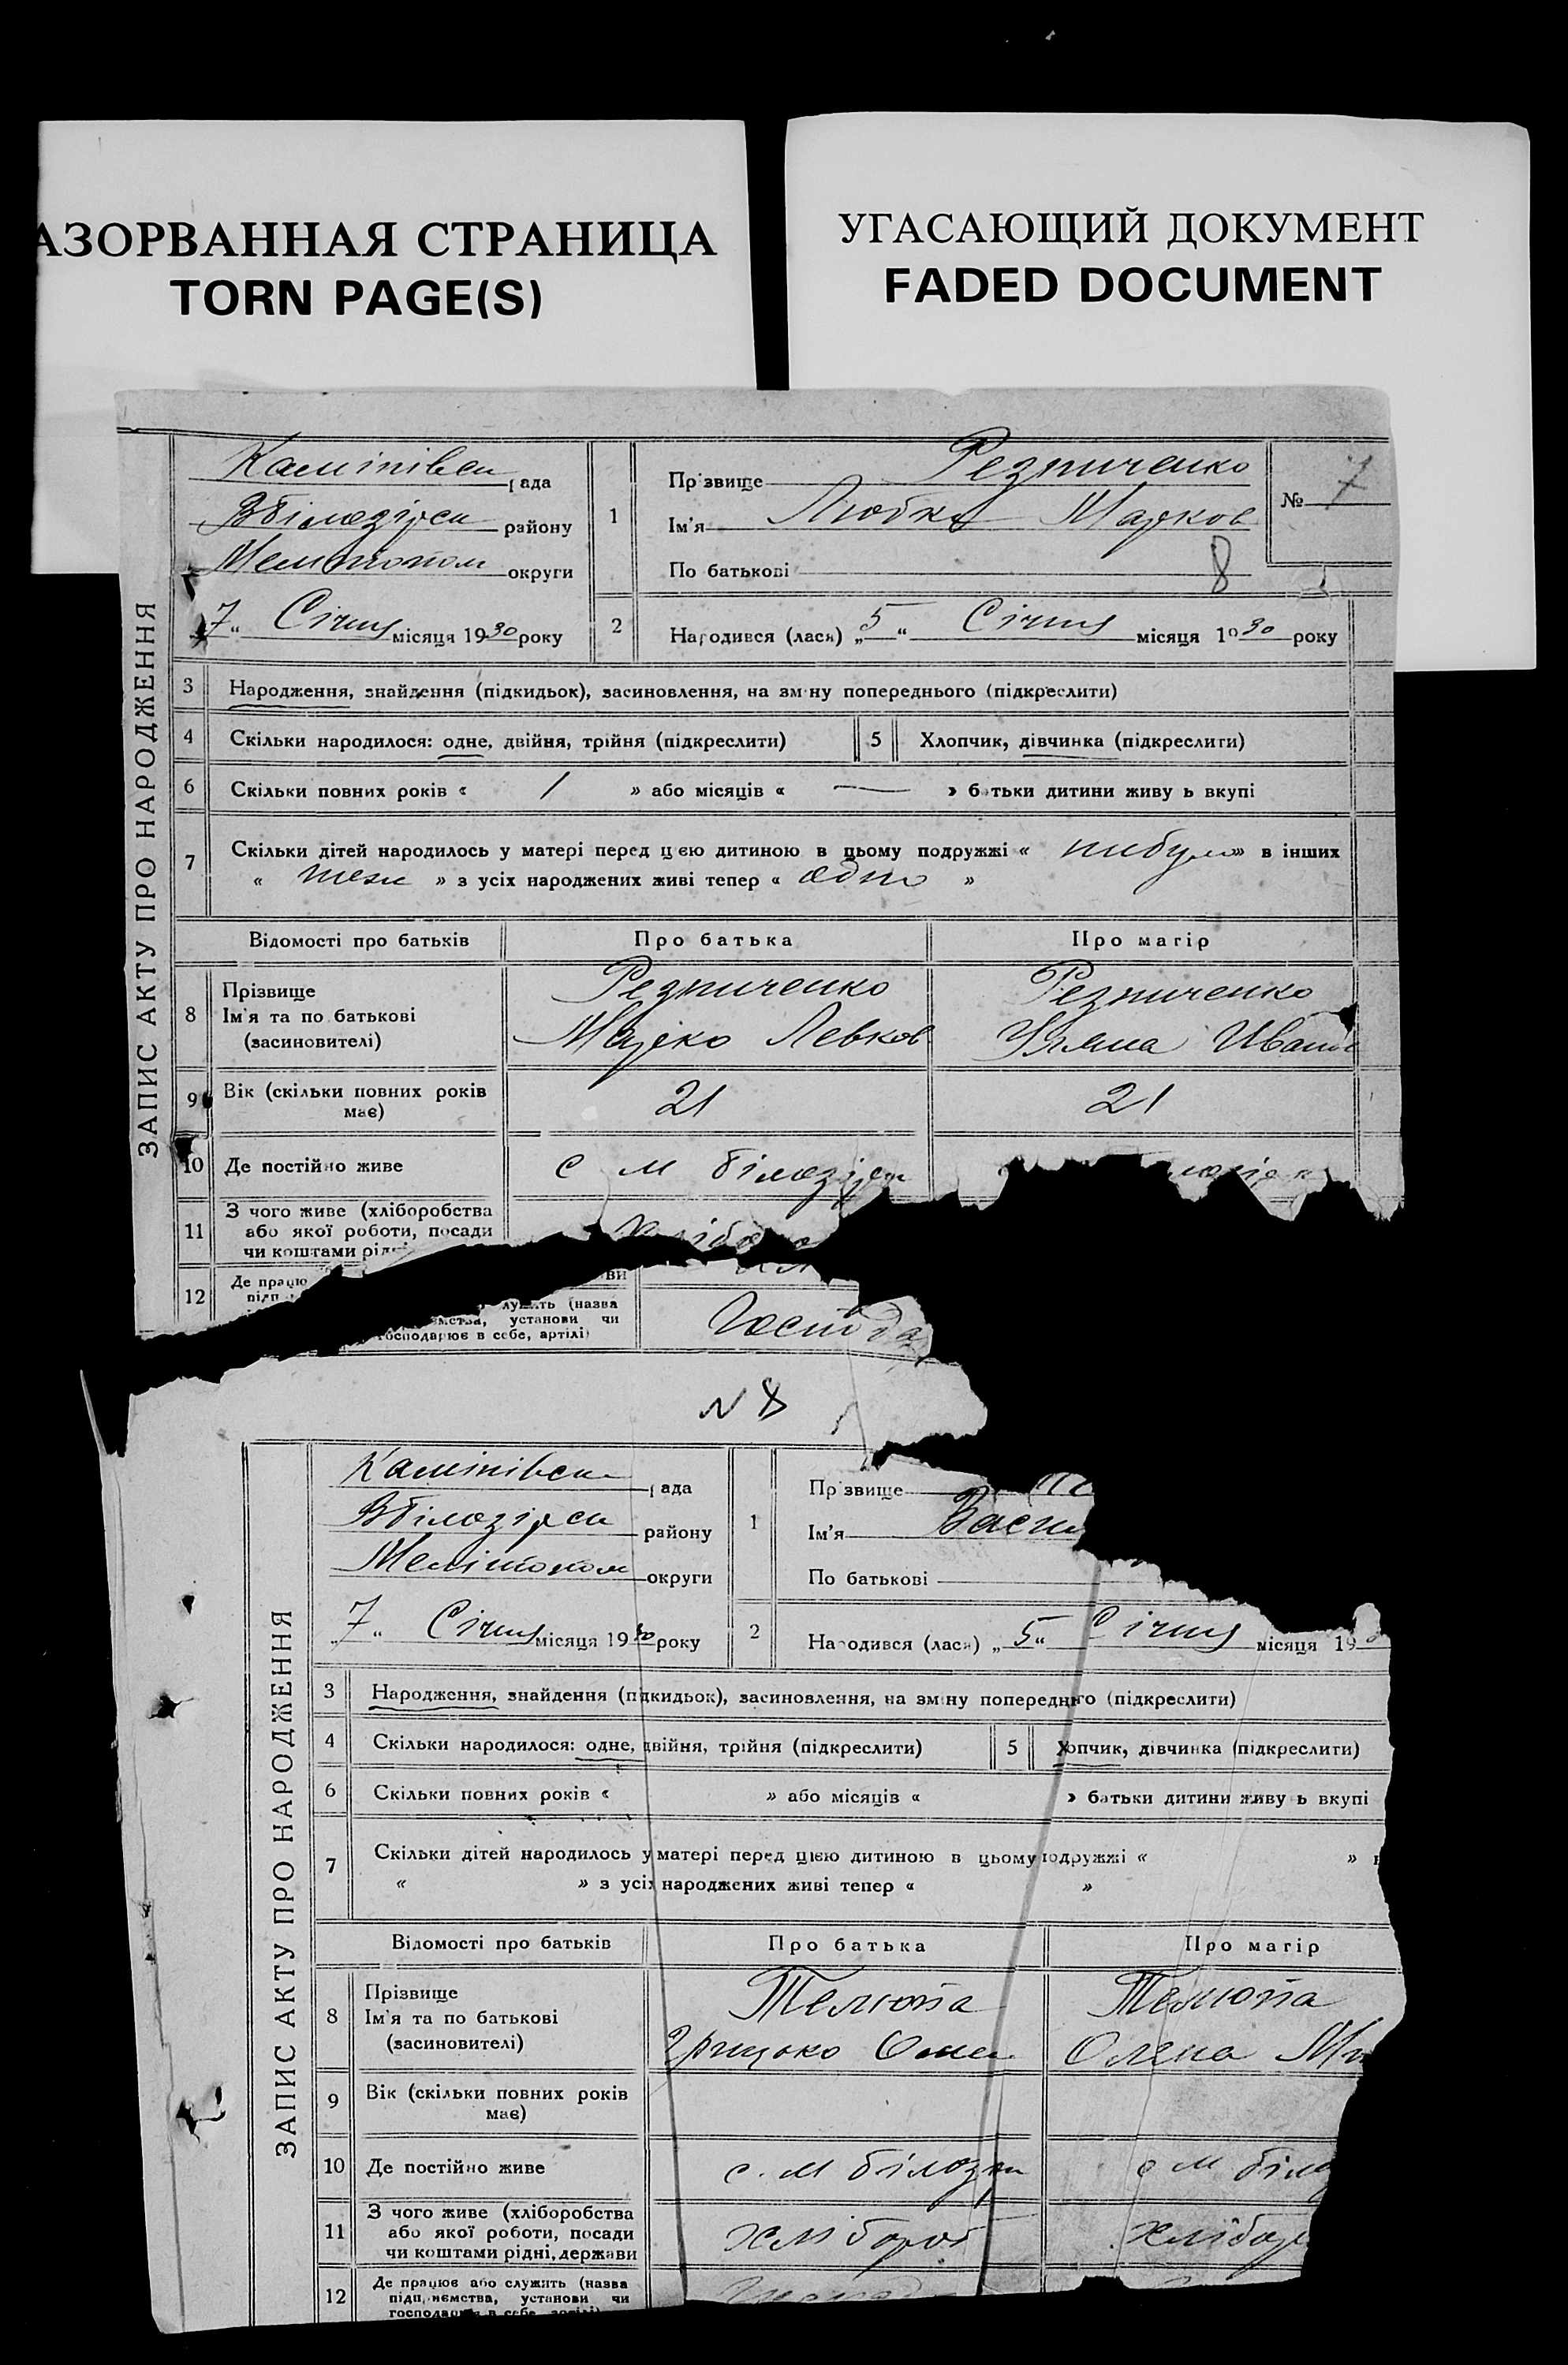 АЗОРВАННАЯ СТРАНИЦА
TORN PAGE(S)
УГАСАЮЩИЙ ДОКУМЕНТ
FADED DOCUMENT
ЗАПИС АКТУ ПРО НАРОДЖЕННЯ
рада
району
Мелитопол округи
7 “ Січня місяця 1930 року
1
Прізвище Резниченко
Ім'я Любка Марков
По батькові
8
№ 7
2
Народився (лася) „5“ Січня місяця 1930 року
3 Народження, знайдення (підкидьок), засиновлення, на зміну попереднього (підкреслити)
4 Скільки народилося: одне, двійня, трійня (підкреслити)
5 Хлопчик, дівчинка (підкреслити)
6 Скільки повних років « 1 » або місяців « — » батьки дитини живуть вкупі
7 Скільки дітей народилось у матері перед цією дитиною в цьому подружжі « » в інших
« теж » з усіх народжених живі тепер « одно »
Відомості про батьків
Про батька
Про матір
8 Прізвище
Ім'я та по батькові
(засиновителі)
Резниченко
Марко Левков
Резниченко
Уляна Иван
9 Вік (скільки повних років
має)
21
21
10 Де постійно живе
с м білозірка
11 З чого живе (хліборобства
або якої роботи, посади
чи коштами рідні
12 Де працює
служить (назва
установи чи
господарює в себе, артілі)
Господа
N 8
ЗАПИС АКТУ ПРО НАРОДЖЕННЯ
рада
району
Мелітопол округи
„7“ Січня місяця 1930 року
1
Прізвище
Ім'я Васи
По батькові
2
Народився (лася) „5“ Січня місяця 193
3 Народження, знайдення (підкидьок), засиновлення, на зміну попереднього (підкреслити)
4 Скільки народилося: одне, двійня, трійня (підкреслити)
5 Хлопчик, дівчинка (підкреслити)
6 Скільки повних років « » або місяців « » батьки дитини живуть вкупі
7 Скільки дітей народилось у матері перед цією дитиною в цьому подружжі « » в
« » з усіх народжених живі тепер « »
Відомості про батьків
Про батька
Про матір
8 Прізвище
Ім'я та по батькові
(засиновителі)
Телюпа
Грицько Омел
Телюпа
Олена Ми
9 Вік (скільки повних років
має)
10 Де постійно живе
с. м білозірк
с м біло
11 З чого живе (хліборобства
або якої роботи, посади
чи коштами рідні, держави
хлібороб
хлібор
12 Де працює або служить (назва
підприємства, установи чи
господарює в себе, артілі)